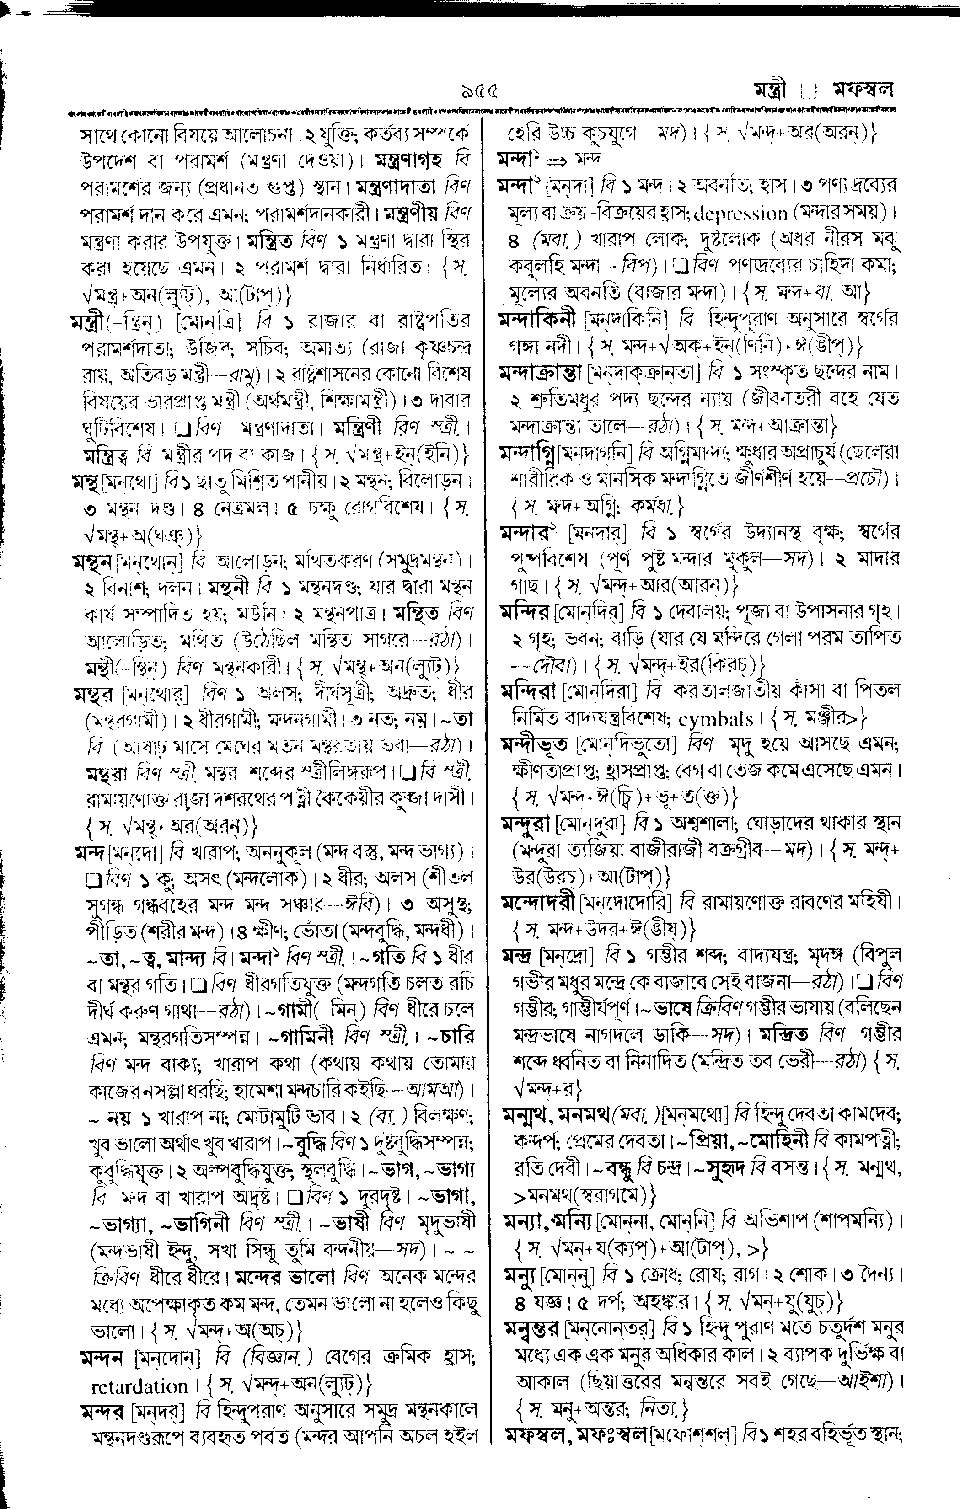 ৯৫৫
মন্ত্রী □ মফস্বল
সাথে কোনো বিষয়ে আলোচনা। ২ যুক্তি; কর্তব্য সম্পর্কে
উপদেশ বা পরামর্শ (মন্ত্রণা দেওয়া)। মন্ত্রণাগৃহ বি
পরামর্শের জন্য (প্রধানত গুপ্ত) স্থান। মন্ত্রণাদাতা বিণ
পরামর্শ দান করে এমন; পরামর্শদানকারী। মন্ত্রণীয় বিণ
মন্ত্রণা করার উপযুক্ত। মন্ত্রিত বিণ ১ মন্ত্রণা দ্বারা স্থির
করা হয়েছে এমন। ২ পরামর্শ দ্বারা নির্ধারিত। {স.
√মন্ত্র্+অন(ল্যুট্), আ(টাপ্)}
মন্ত্রী(-ন্ত্রিন্) [মোন্‌ত্রি] বি ১ রাজার বা রাষ্ট্রপতির
পরামর্শদাতা; উজির; সচিব; অমাত্য (রাজা কৃষ্ণচন্দ্র
রায়, অতিবড় মন্ত্রী—রামু)। ২ রাষ্ট্রশাসনের কোনো বিশেষ
বিষয়ের ভারপ্রাপ্ত মন্ত্রী (অর্থমন্ত্রী, শিক্ষামন্ত্রী)। ৩ দাবার
ঘুটিবিশেষ। □ বিণ মন্ত্রণাদাতা। মন্ত্রিণী বিণ স্ত্রী.।
মন্ত্রিত্ব বি মন্ত্রীর পদ বা কাজ। {স. √মন্ত্র্+ইন্(ইনি)}
মন্থ [মন্‌থো] বি ১ ছাতু মিশ্রিত পানীয়। ২ মন্থন; বিলোড়ন।
৩ মন্থন দণ্ড। ৪ নেত্রমল। ৫ চক্ষু রোগবিশেষ। {স.
√মন্থ্+অ(ঘঞ্)}
মন্থন [মন্‌থোন্] বি আলোড়ন; মথিতকরণ (সমুদ্রমন্থন)।
২ বিনাশ; দলন। মন্থনী বি ১ মন্থনদণ্ড; যার দ্বারা মন্থন
কার্য সম্পাদিত হয়; মউনি। ২ মন্থনপাত্র। মন্থিত বিণ
আলোড়িত; মথিত (উঠেছিল মন্থিত সাগরে—রঠা)।
মন্থী(-ন্থিন্) বিণ মন্থনকারী। {স. √মন্থ্+অন(ল্যুট্)}
মন্থর [মন্‌থোর্] বিণ ১ অলস; দীর্ঘসূত্রী; অদ্রুত; ধীর
(মন্থরগামী)। ২ ধীরগামী; মদনগামী। ৩ নত; নম্র। ~তা
বি (আষাঢ় মাসে মেঘের মতন মন্থরতায় ভরা—রঠা)।
মন্থরা বিণ স্ত্রী. মন্থর শব্দের স্ত্রীলিঙ্গরূপ। □ বি স্ত্রী.
রামায়ণোক্ত রাজা দশরথের পত্নী কৈকেয়ীর কুব্জা দাসী।
{স. √মন্থ্+অর(অরন্)}
মন্দ [মন্‌দো] বি খারাপ; অননুকূল (মন্দ বস্তু, মন্দ ভাগ্য)।
□ বিণ ১ কু; অসৎ (মন্দলোক)। ২ ধীর; অলস (শীতল
সুগন্ধ গন্ধবহের মন্দ মন্দ সঞ্চার—ঈবি)। ৩ অসুস্থ;
পীড়িত (শরীর মন্দ)। ৪ ক্ষীণ; ভোঁতা (মন্দবুদ্ধি, মন্দধী)।
~তা, ~ত্ব, মান্দ্য বি। মন্দা১ বিণ স্ত্রী.। ~গতি বি ১ ধীর
বা মন্থর গতি। □ বিণ ধীরগতিযুক্ত (মন্দগতি চলত রচি
দীর্ঘ করুণ গাথা—রঠা)। ~গামী(-মিন্) বিণ ধীরে চলে
এমন; মন্থরগতিসম্পন্ন। ~গামিনী বিণ স্ত্রী.। ~চারি
বিণ মন্দ বাক্য; খারাপ কথা (কথায় কথায় তোমার
কাজের নসল্লা ধরছি; হামেশা মন্দচারি কইছি—আমআ)।
~ নয় ১ খারাপ না; মোটামুটি ভাব। ২ (ব্য.) বিলক্ষণ;
খুব ভালো অর্থাৎ খুব খারাপ। ~বুদ্ধি বিণ ১ দুষ্টবুদ্ধিসম্পন্ন;
কুবুদ্ধিযুক্ত। ২ অল্পবুদ্ধিযুক্ত; স্থূলবুদ্ধি। ~ভাগ, ~ভাগ্য
বি মন্দ বা খারাপ অদৃষ্ট। □ বিণ ১ দুরদৃষ্ট। ~ভাগা,
~ভাগ্যা, ~ভাগিনী বিণ স্ত্রী.। ~ভাষী বিণ মৃদুভাষী
(মন্দভাষী ইন্দু, সখা সিন্ধু তুমি বন্দনীয়—সদ)। ~ ~
ক্রিবিণ ধীরে ধীরে। মন্দের ভালো বিণ অনেক মন্দের
মধ্যে অপেক্ষাকৃত কম মন্দ, তেমন ভালো না হলেও কিছু
ভালো। {স. √মন্দ্+অ(অচ্)}
মন্দন [মন্‌দোন্] বি (বিজ্ঞান.) বেগের ক্রমিক হ্রাস;
retardation। {স. √মন্দ্+অন(ল্যুট্)}
মন্দর [মন্‌দর্] বি হিন্দুপুরাণ অনুসারে সমুদ্র মন্থনকালে
মন্থনদণ্ডরূপে ব্যবহৃত পর্বত (মন্দর আপনি অচল হইল
হেরি উচ্চ কুচযুগে—মদ)। {স. √মন্দ্+অর(অরন্)}
মন্দা১ ⇒ মন্দ
মন্দা২ [মন্‌দা] বি ১ মন্দ। ২ অবনতি; হ্রাস। ৩ পণ্যদ্রব্যের
মূল্য বা ক্রয়-বিক্রয়ের হ্রাস; depression (মন্দার সময়)।
৪ (মবা.) খারাপ লোক; দুষ্টলোক (অধর নীরস মবু
কবুলহি মন্দা—বিপ)। □ বিণ পণ্যদ্রব্যের চাহিদা কমা;
মূল্যের অবনতি (বাজার মন্দা)। {স. মন্দ+বা. আ}
মন্দাকিনী [মন্‌দাকিনি] বি হিন্দুপুরাণ অনুসারে স্বর্গের
গঙ্গা নদী। {স. মন্দ+√অক্+ইন্(ণিনি)+ঈ(ঙীপ্)}
মন্দাক্রান্তা [মন্‌দাক্‌ক্রান্‌তা] বি ১ সংস্কৃত ছন্দের নাম।
২ শ্রুতিমধুর পদ্য ছন্দের ন্যায় (জীবনতরী বহে যেত
মন্দাক্রান্তা তালে—রঠা)। {স. মন্দ+আক্রান্তা}
মন্দাগ্নি [মন্‌দাগ্‌নি] বি অগ্নিমান্দ্য; ক্ষুধার অপ্রাচুর্য (ছেলেরা
শারীরিক ও মানসিক মন্দাগ্নিতে জীর্ণশীর্ণ হয়ে—প্রচৌ)।
{স. মন্দ+অগ্নি; কর্মধা.}
মন্দার [মন্‌দার্] বি ১ স্বর্গের উদ্যানস্থ বৃক্ষ; স্বর্গের
পুষ্পবিশেষ (পূর্ণ পুষ্ট মন্দার মুকুল—সদ)। ২ মাদার
গাছ। {স. √মন্দ্+আর(আরন্)}
মন্দির [মোন্‌দির্] বি ১ দেবালয়; পূজা বা উপাসনার গৃহ।
২ গৃহ; ভবন; বাড়ি (যার যে মন্দিরে গেলা পরম তাপিত
—দৌবা)। {স. √মন্দ্+ইর(কিরচ্)}
মন্দিরা [মোন্‌দিরা] বি করতালজাতীয় কাঁসা বা পিতল
নির্মিত বাদ্যযন্ত্রবিশেষ; cymbals। {স. মঞ্জীর>}
মন্দীভূত [মোন্‌দিভুতো] বিণ মৃদু হয়ে আসছে এমন;
ক্ষীণতাপ্রাপ্ত; হ্রাসপ্রাপ্ত; বেগ বা তেজ কমে এসেছে এমন।
{স. √মন্দ+ঈ(চ্বি)+ভূ+ত(ক্ত)}
মন্দুরা [মোন্‌দুরা] বি ১ অশ্বশালা; ঘোড়াদের থাকার স্থান
(মন্দুরা ত্যজিয়া বাজীরাজী বক্রগ্রীব—মদ)। {স. মন্দ্+
উর(উরচ্)+আ(টাপ্)}
মন্দোদরী [মন্‌দোদোরি] বি রামায়ণোক্ত রাবণের মহিষী।
{স. মন্দ+উদর+ঈ(ঙীষ্)}
মন্দ্র [মন্‌দ্রো] বি ১ গম্ভীর শব্দ; বাদ্যযন্ত্র; মৃদঙ্গ (বিপুল
গভীর মধুর মন্দ্রে কে বাজাবে সেই বাজনা—রঠা)। □ বিণ
গম্ভীর; গাম্ভীর্যপূর্ণ। ~ভাষে ক্রিবিণ গম্ভীর ভাষায় (বলিছেন
মন্দ্রভাষে নাগদলে ডাকি—সদ)। মন্দ্রিত বিণ গম্ভীর
শব্দে ধ্বনিত বা নিনাদিত (মন্দ্রিত তব ভেরী—রঠা) {স.
√মন্দ্+র}
মন্মথ, মনমথ (মবা.) [মন্‌মথো] বি হিন্দু দেবতা কামদেব;
কন্দর্প; প্রেমের দেবতা। ~প্রিয়া, ~মোহিনী বি কামপত্নী;
রতি দেবী। ~বন্ধু বি চন্দ্র। ~সুহৃদ বি বসন্ত। {স. মন্মথ,
>মনমথ(স্বরাগমে)}
মন্যা, মন্যি [মোন্‌না, মোন্‌নি] বি অভিশাপ (শাপমন্যি)।
{স. √মন্+য(ক্যপ্)+আ(টাপ্), >}
মন্যু [মোন্‌নু] বি ১ ক্রোধ; রোষ; রাগ। ২ শোক। ৩ দৈন্য।
৪ যজ্ঞ। ৫ দর্প; অহঙ্কার। {স. √মন্+যু(যুচ্)}
মন্বন্তর [মন্‌নোন্‌তর্] বি ১ হিন্দু পুরাণ মতে চতুর্দশ মনুর
মধ্যে এক এক মনুর অধিকার কাল। ২ ব্যাপক দুর্ভিক্ষ বা
আকাল (ছিয়াত্তরের মন্বন্তরে সবই গেছে—আইশা)।
{স. মনু+অন্তর; নিত্য.}
মফস্বল, মফঃস্বল [মফোশ্‌শল্] বি ১ শহর বহির্ভূত স্থান;